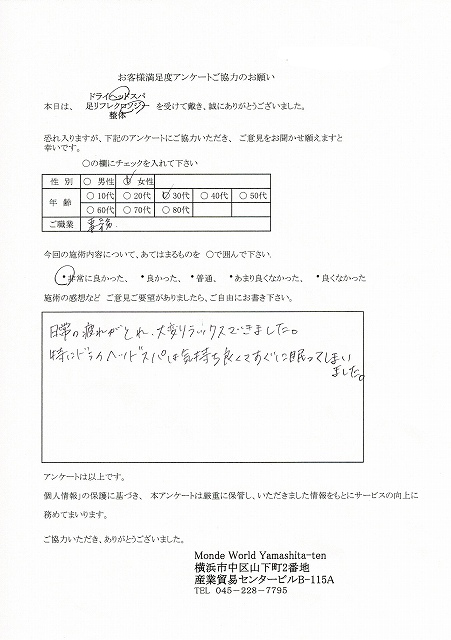 お客様満足度アンケートご協力のお願い
ドライヘッドスパ
本日は、 足リフレクロソジー を受けて戴き、誠にありがとうございました。
整体
恐れ入りますが、下記のアンケートにご協力いただき、 ご意見をお聞かせ願えますと
幸いです。
○の欄にチェックを入れて下さい
性 別 ○ 男性 ○ 女性
年 齢 ○ 10代 ○ 20代 ○ 30代 ○ 40代 ○ 50代
○ 60代 ○ 70代 ○ 80代
ご職業 事務
今回の施術内容について、あてはまるものを ○で囲んで下さい。
・非常に良かった、 ・良かった、 ・普通、 ・あまり良くなかった、 ・良くなかった
施術の感想など ご意見ご要望がありましたら、ご自由にお書き下さい。
日常の疲れがとれ、大変リラックスできました。
特にドライヘッドスパは気持ち良くてすぐに眠ってしまい
ました。
アンケートは以上です。
個人情報」の保護に基づき、 本アンケートは厳重に保管し、いただきました情報をもとにサービスの向上に
務めてまいります。
ご協力いただき、ありがとうございました。
Monde World Yamashita-ten
横浜市中区山下町2番地
産業貿易センタービルB-115A
TEL 045-228-7795